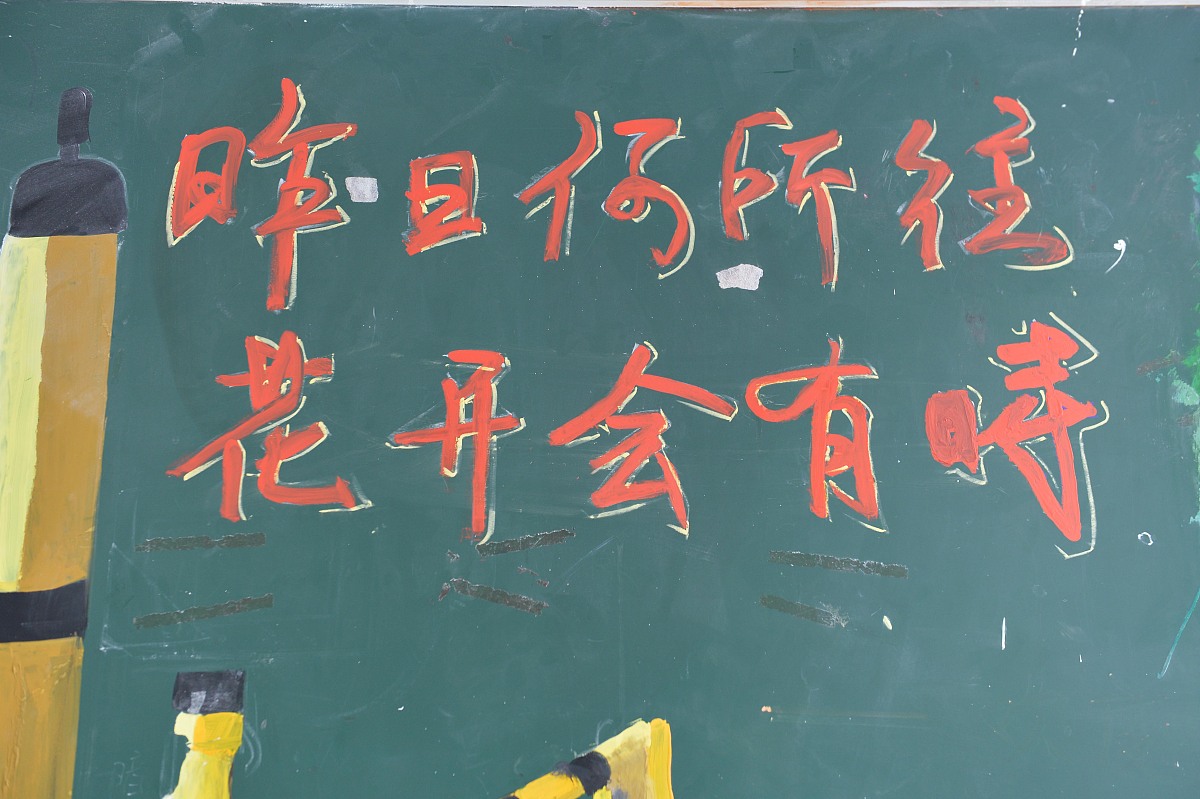 昨日何所往，
花开会有時